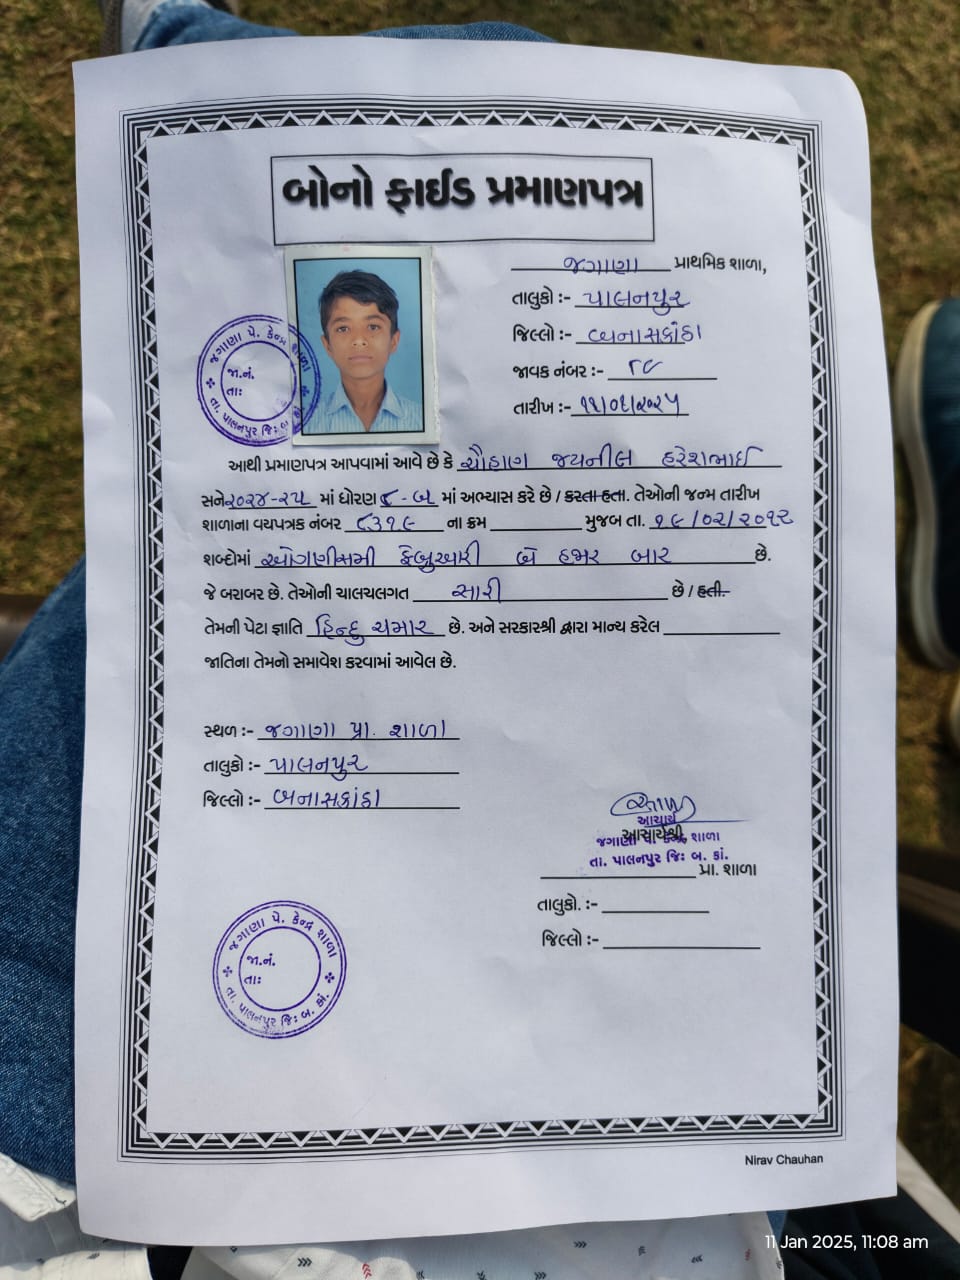 બોનો ફાઈડ પ્રમાણપત્ર
જગાણા પ્રાથમિક શાળા,
તાલુકો :- પાલનપુર
જિલ્લો :- બનાસકાંઠા
જાવક નંબર :-
તારીખ :- ૧૧/૦૧/૨૦૨૫
જગાણા પે. કેન્દ્ર શાળા
જા.નં.
તા:
તા. પાલનપુર જિ: બ. કાં.
આથી પ્રમાણપત્ર આપવામાં આવે છે કે ચૌહાણ જયનીલ હરેશભાઈ
સને ૨૦૨૪-૨૫ માં ધોરણ ૮-બ માં અભ્યાસ કરે છે / કરતા હતા. તેઓની જન્મ તારીખ
શાળાના વયપત્રક નંબર ૮૩૧૯ ના ક્રમ મુજબ તા. ૧૯/૦૨/૨૦૧૨
શબ્દોમાં ઓગણીસમી ફેબ્રુઆરી બે હજાર બાર છે.
જે બરાબર છે. તેઓની ચાલચલગત સારી છે / હતી.
તેમની પેટા જ્ઞાતિ હિન્દુ ચમાર છે. અને સરકારશ્રી દ્વારા માન્ય કરેલ
જાતિના તેમનો સમાવેશ કરવામાં આવેલ છે.
સ્થળ :- જગાણા પ્રા. શાળા
તાલુકો :- પાલનપુર
જિલ્લો :- બનાસકાંઠા
આચાર્ય
આચાર્યશ્રી,
જગાણા પે. કેન્દ્ર શાળા
તા. પાલનપુર જિ: બ. કાં.
પ્રા. શાળા
તાલુકો. :-
જિલ્લો :-
જગાણા પે. કેન્દ્ર શાળા
જા.નં.
તા:
તા. પાલનપુર જિ: બ. કાં.
Nirav Chauhan
11 Jan 2025, 11:08 am